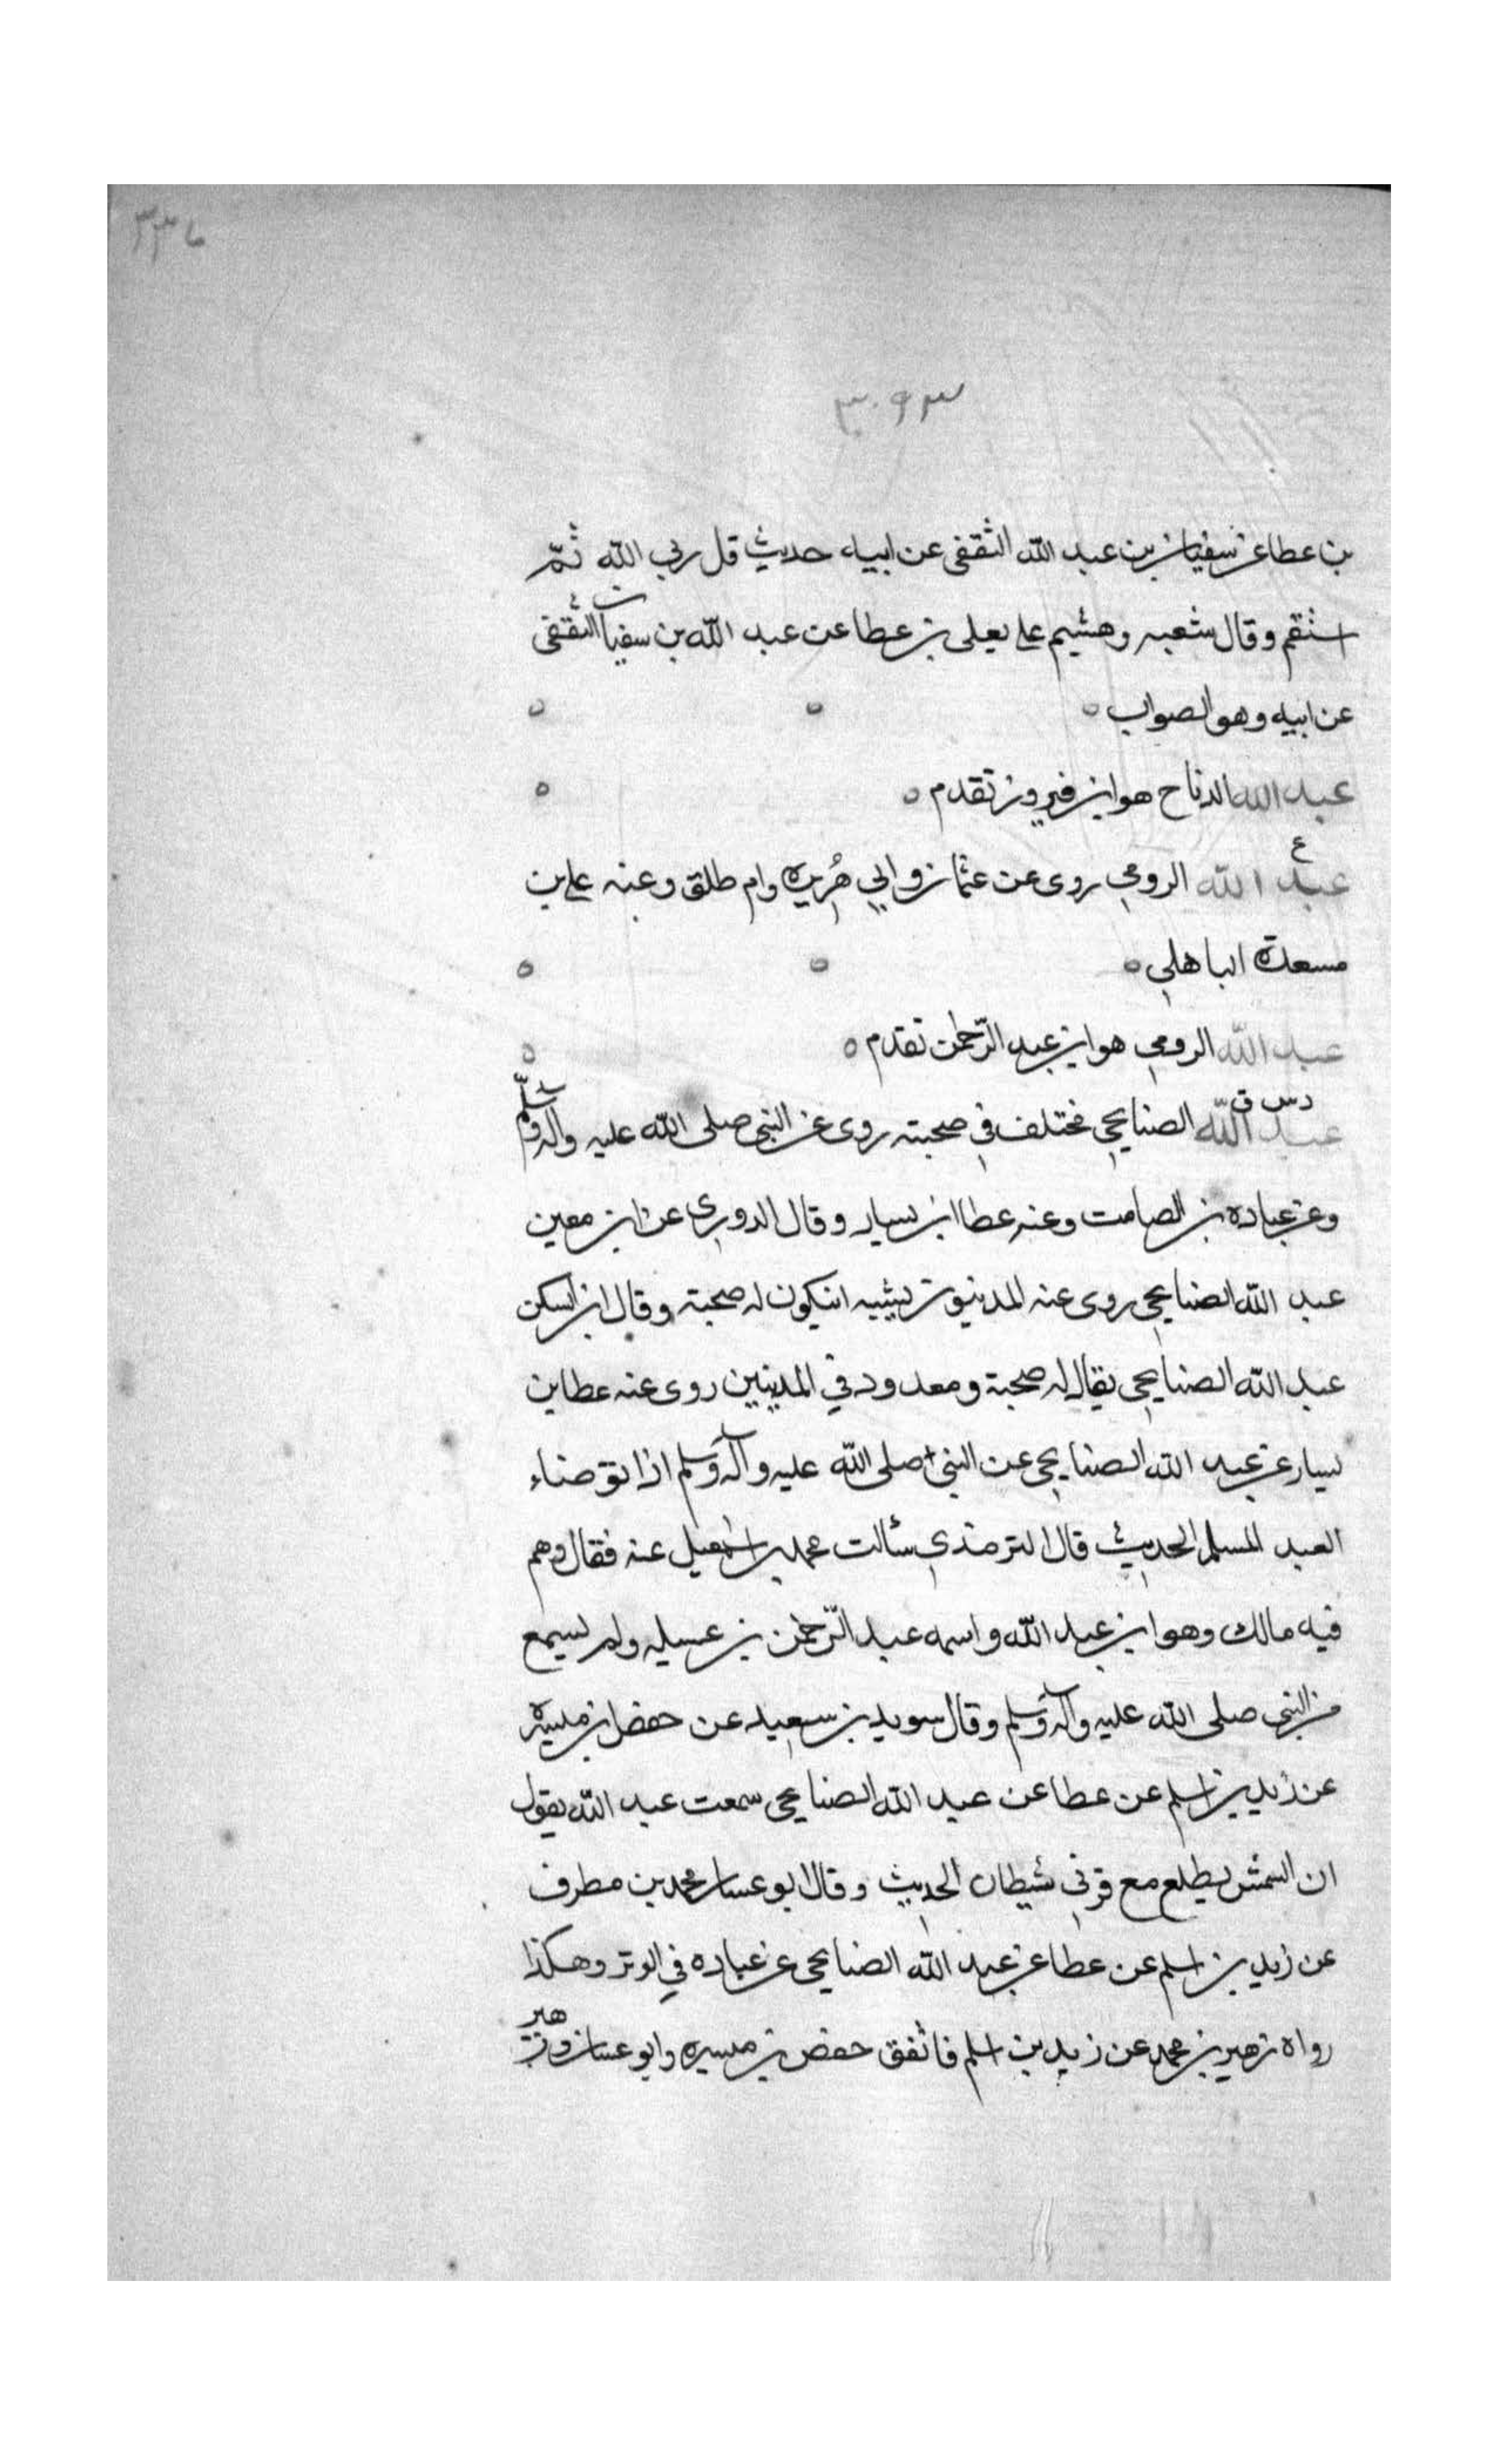 ٣٠٩٣
بن عطا عن سفيان بن عبد الله الثقفى عن ابيه حديث قل ربي الله ثمّ
استقم وقال شعبه وهشيم على يعلى بن عطا عن عبد الله بن سفيان الثقفى
عن ابيه وهو الصواب ه ه ه
عبد الله الدناح هو ابن فيروز تقدم ه ه
ع
عبد الله الرومي روى عن عثمان وابي هُريره وام طلق وعنه على بن
مسعدة الباهلي ه ه ه
عبد الله الرومي هو ابن عبد الرّحمن تقدم ه ه
د س ق
عبد الله الصنابحي مختلف في صحبته روى عن النبى صلى الله عليه وآله وسلّم
وعن عباده بن الصامت وعنه عطا ابن يسار وقال الدوري عن ابن معين
عبد الله الصنابحي روى عنه المدنيون يشبه ان يكون له صحبة وقال ابن السكن
عبد الله الصنابحي يقال له صحبة ومعدود في المدينيين روى عنه عطا بن
يسار عن عبد الله الصنابحي عن النبى صلى الله عليه وآله وسلم اذا توضاء
العبد المسلم الحديث قال الترمذي سئالت محمد بن اسمعيل عنه فقال وهم
فيه مالك وهو ابن عبد الله واسمه عبد الرّحمن بن عسيله ولم يسمع
من النبى صلى الله عليه وآله وسلم وقال سويد بن سعيد عن حفص ابن ميسره
عن زيد بن اسلم عن عطا عن عبد الله الصنابحي سمعت عبد الله يقول
ان الشمش يطلع مع قرني شيطان الحديث وقال ابو عسان محمد بن مطرف
عن زيد بن اسلم عن عطا عن عبد الله الصنابحي عن عباده في الوتر وهكذا
رواه زهير بن محمد عن زيد بن اسلم فاتفق حفص بن ميسره وابو عسان وزهير